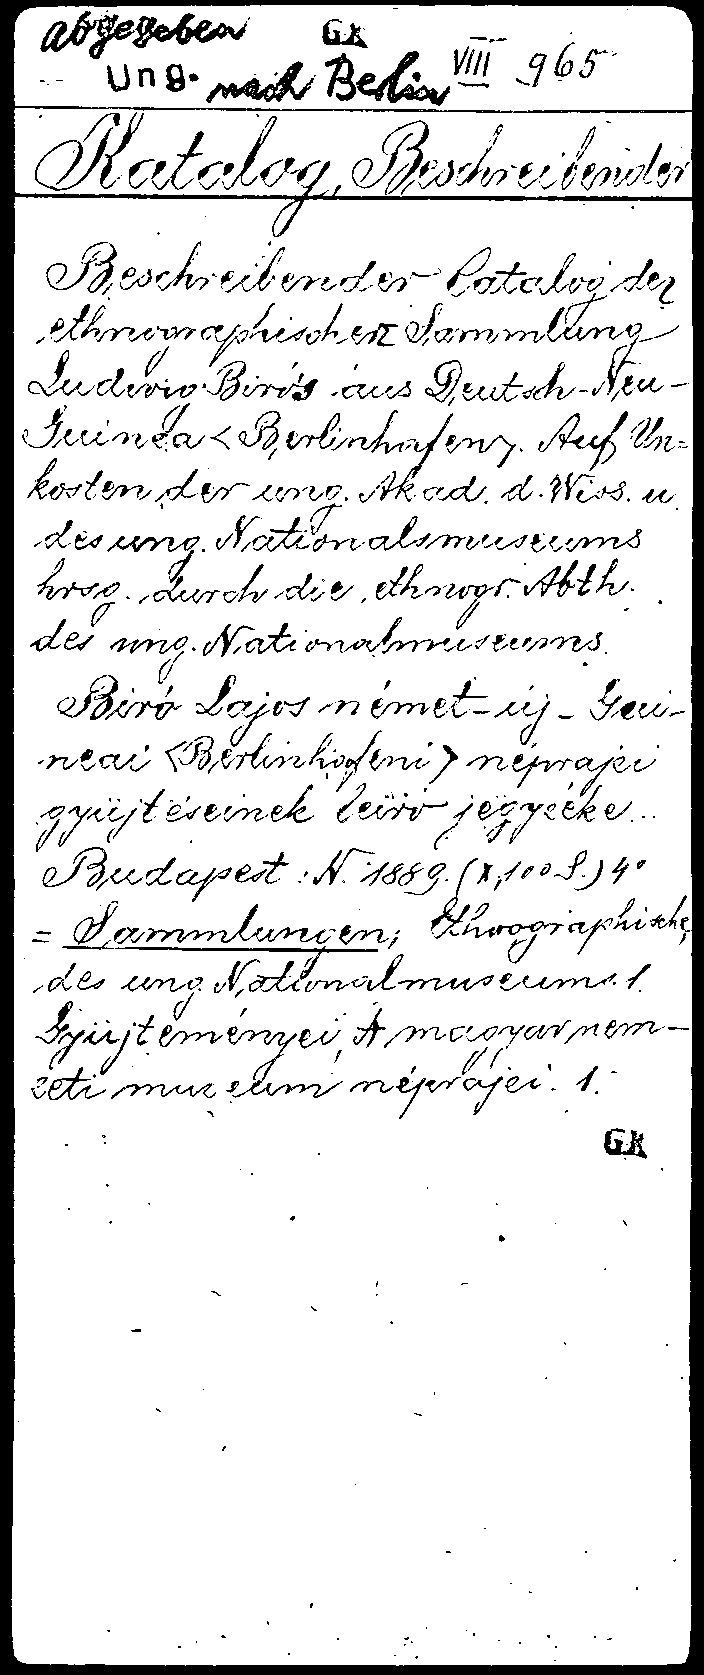 abgegeben GK
Ung. nach Berlin VIII 965
Katalog, Beschreibender
Beschreibender Catalog der
ethnographischen Sammlung
Ludwig Biró's aus Deutsch-Neu-
Guinea <Berlinhafen>. Auf Un=
kosten der ung. Akad. d. Wiss. u.
des ung. Nationalsmuseums
hrsg. durch die ethnogr. Abth.
des ung. Nationalmuseums.
Biró Lajos német-új-Gui-
neai <Berlinhafeni> néprajzi
gyüjtéseinek leiró jegyzéke...
Budapest: N. 1889. (X, 100 S.) 4°
= Sammlungen, Ethnographische,
des ung. Nationalmuseums. 1.
Gyüjteményei, A magyar nem-
zeti muzeum néprajzi. 1.
GK